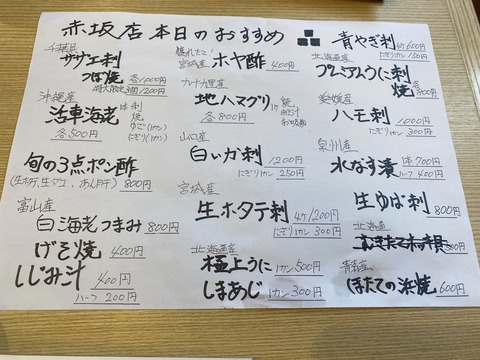 赤坂店 本日のおすすめ
千葉産
サザエ刺
つぼ焼 各1000円
沖縄産
活車海老
各500円
刺
焼
ゆで(1カン)
にぎり(1カン)
旬の3点ポン酢
(生ホタテ、生ダコ、あん肝) 800円
富山産
白海老つまみ 800円
げそ焼 400円
しじみ汁 400円
ハーフ 200円
獲れたて!
宮城産 ホヤ酢 400円
九十九里産
地ハマグリ
各800円
焼
お吸物
山口産
白いか刺 1200円
にぎり1カン 250円
宮城産
生ホタテ刺 1200円
にぎり1カン 300円
北海道産
極上うに 1カン 500円
しまあじ 1カン 300円
青やぎ刺 600円
にぎり1カン 150円
北海道産
プレミアムうに刺
焼 各800円
愛媛産
ハモ刺 1000円
にぎり1カン 300円
泉州産
水なす漬 1本 700円
ハーフ 400円
生ゆば刺 800円
北海道
青森産
ほたての浜焼 600円